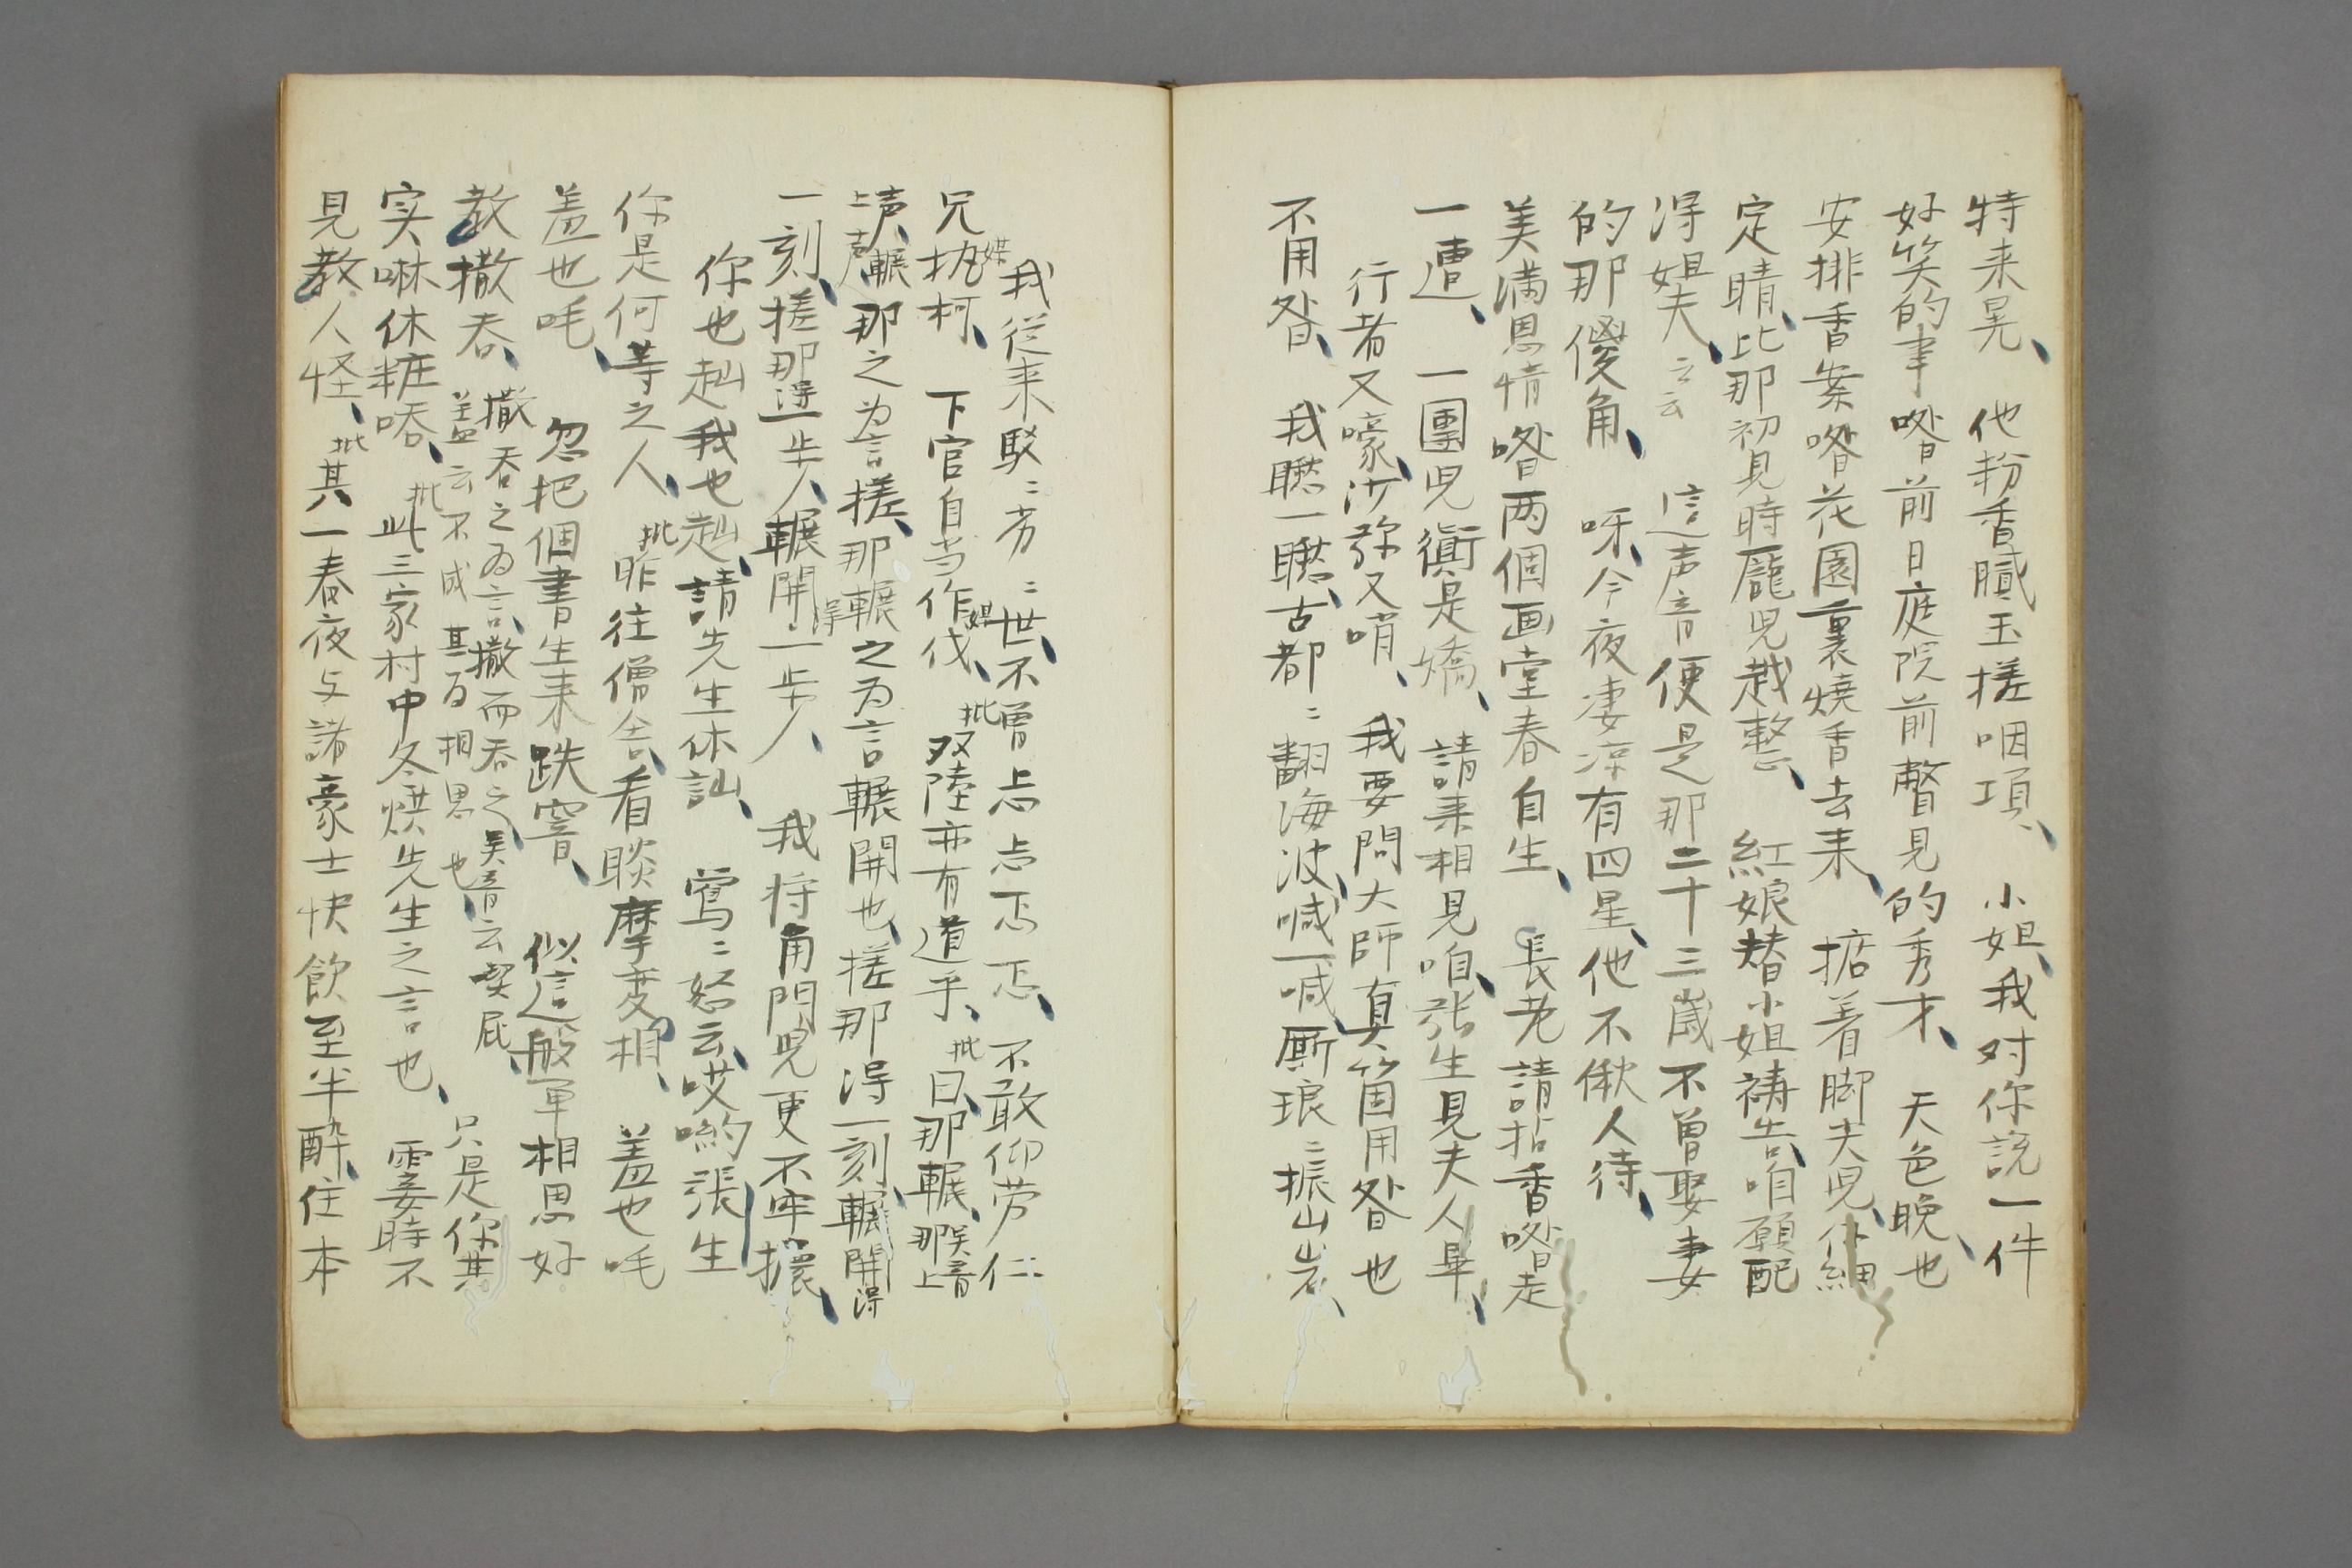 特来晃、他粉香膩玉搓咽項、小姐、我对你説一件
好笑的事喒前日庭院前瞥見的秀才、天色晚也、
安排香案喒花園裏燒香去来、掂着脚夫児、仔細
定睛、比那初見時龐児越整、紅娘替小姐祷告、咱願配
得姐夫、云云 這声音便是那二十三歳不曽娶妻
的那傻角、呀、今夜凄凉有四星、他不偢人待、
美満恩情喒両個画堂春自生、長老請拈香喒走
一遭、一團児衠是嬌、請来相見咱、張生見夫人畢、
行者又嚎、沙弥又哨、我要問大師真箇用咎也
不用咎、我聴一聴、古都〻翻海波、喊一喊、厮琅〻振山岩、
我従来駁〻劣〻世不曽忐忐忑忑、不敢仰労仁
兄执柯、媒 下官自当作伐、媒 批双陸亦有道乎、批曰、那輾、那吴音上
上声、輾去声 那之为言搓、那輾之为言輾開也、搓那得一刻、輾開得
一刻、搓那得一歩、輾開得一歩、我将角門児更不牢擐、
你也赸我也赸、請先生休訕、鶯〻怒云、哎喲張生
你是何等之人、批昨往僧舍、看睒摩変相、羞也吒
羞也吒、忽把個書生来跌窨、似這般単相思好
教撒吞、撒吞之為言、撒而吞之、吴音云喫屁、
盖云不成其为相思也、只是你其
实啉休粧唔、批此三家村中冬烘先生之言也、霎時不
見教人怪、批其一春夜与諸豪士快飲至半酔、住本